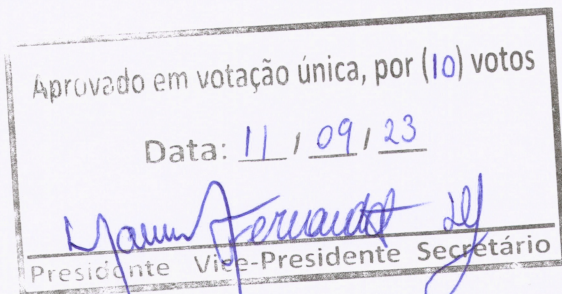 Aprovado em votação única, por (10) votos
Data: 11 / 09 / 23
Fernandes
Presidente Vice-Presidente Secretário